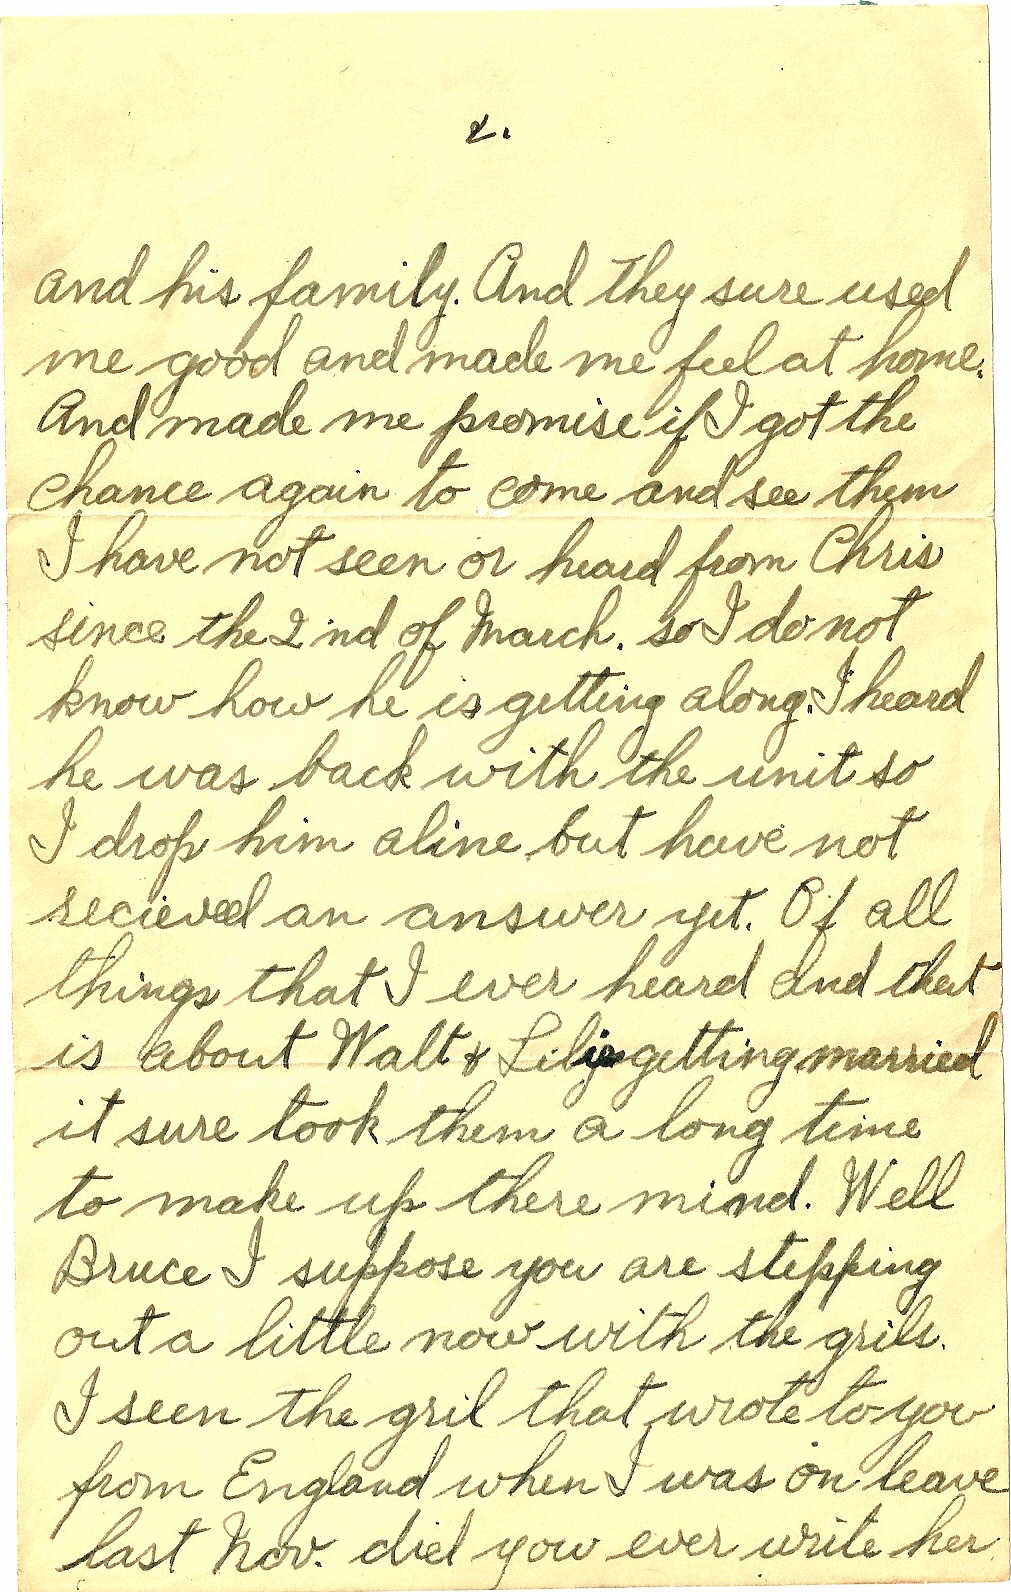 2.
and his family. And they sure used
me good and made me feel at home.
And made me promise if I got the
chance again to come and see them
I have not seen or heard from Chris
since the 2 nd of March. so I do not
know how he is getting along. I heard
he was back with the unit so
I drop him a line but have not
recieved an answer yet. Of all
things that I ever heard and that
is about Walt & getting married
it sure took them a long time
to make up there mind. Well
Bruce I suppose you are stepping
out a little now with the grils.
I seen the gril that wrote to you
from England when I was on leave
last Nov. did you ever write her